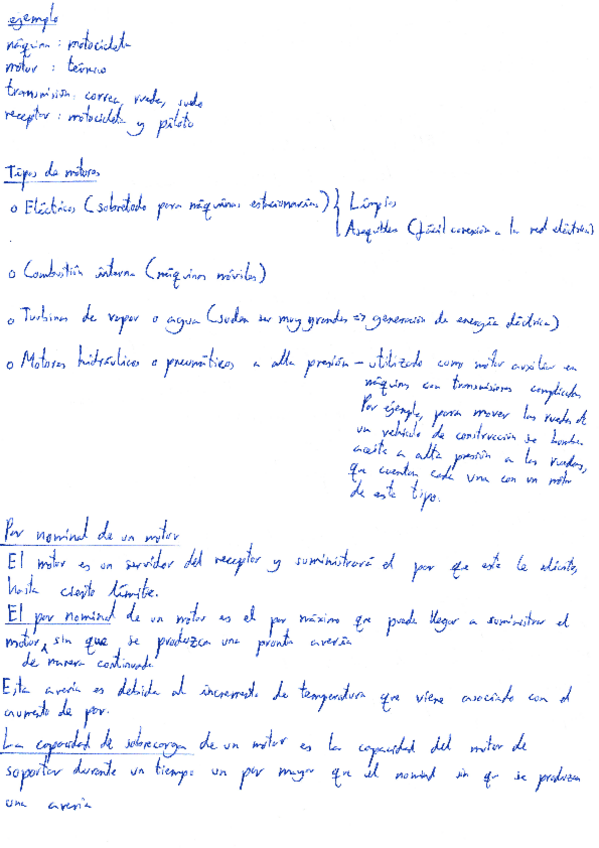 ejemplo
máquina : motocicleta
motor : térmico
transmisión: correa, rueda, suelo
receptor : motocicleta y piloto
Tipos de motores
o Eléctricos (sobretodo para máquinas estacionarias) { Limpios
Asequibles (fácil conexión a la red eléctrica)
o Combustión interna (máquinas móviles)
o Turbinas de vapor o agua (suelen ser muy grandes => generación de energía eléctrica)
o Motores hidráulicos o pneumáticos a alta presión – utilizado como motor auxiliar en
máquinas con transmisiones complicadas.
Por ejemplo, para mover las ruedas de
un vehículo de construcción se bombea
aceite a alta presión a las ruedas,
que cuentan cada una con un motor
de este tipo.
Par nominal de un motor
El motor es un servidor del receptor y suministrará el par que este le solicite,
hasta cierto límite.
El par nominal de un motor es el par máximo que puede llegar a suministrar el
motor, sin que se produzca una pronta avería
de manera continuada
Esta avería es debida al incremento de temperatura que viene asociado con el
aumento de par.
La capacidad de sobrecarga de un motor es la capacidad del motor de
soportar durante un tiempo un par mayor que el nominal sin que se produzca
una avería